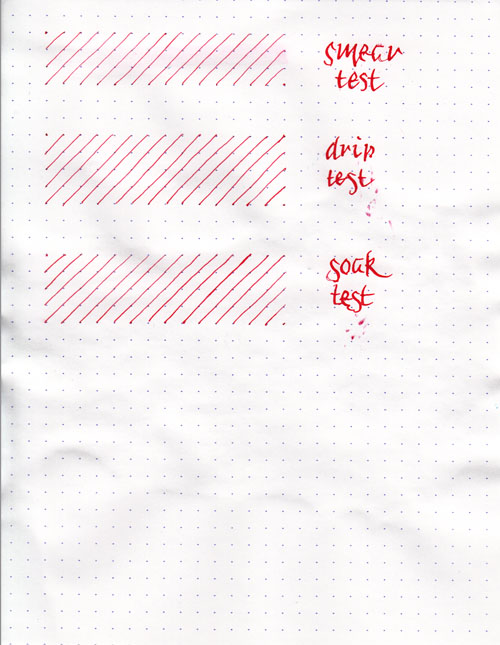 smear
test
drip
test
soak
test